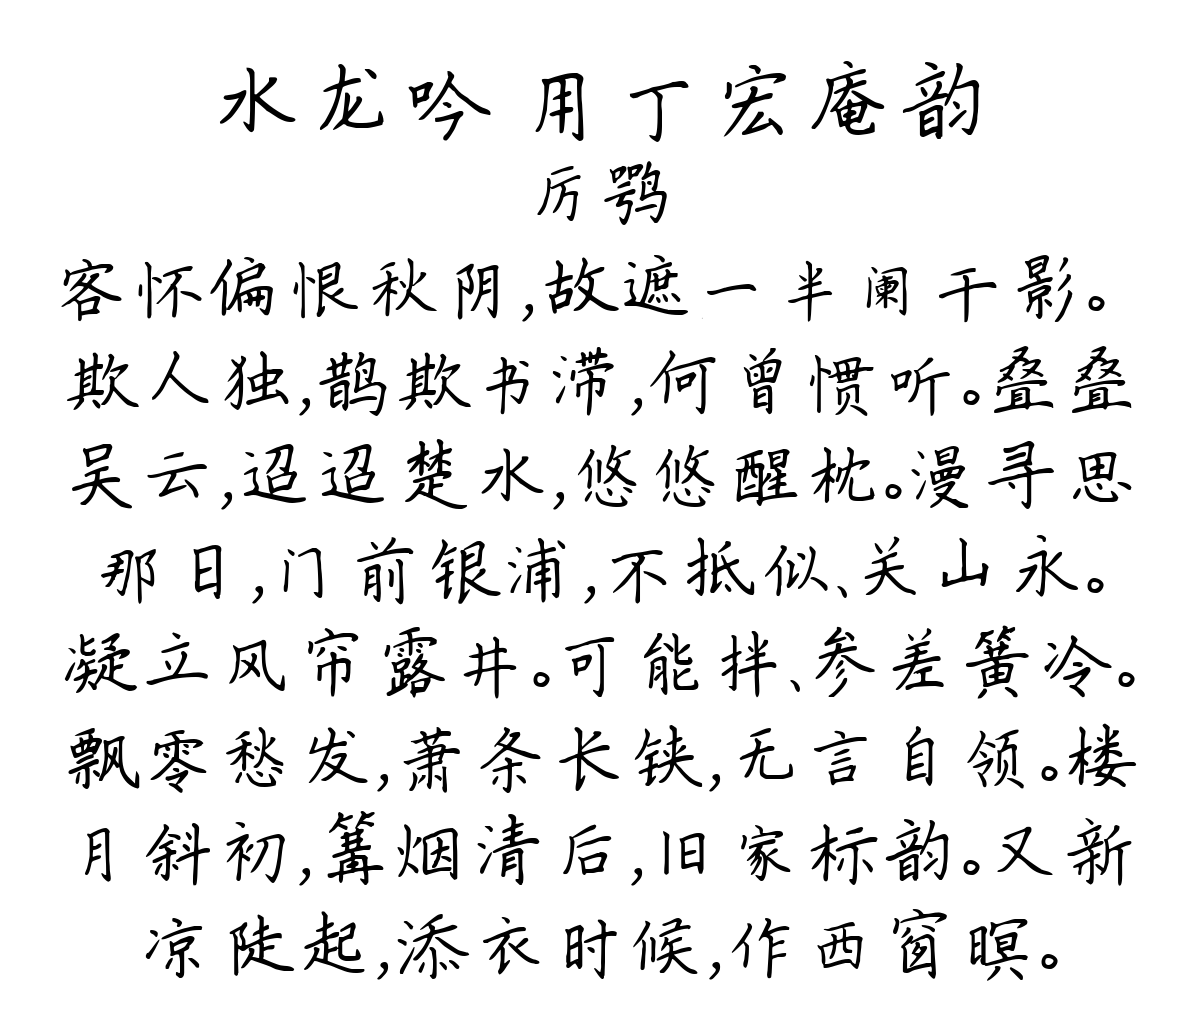 水龙吟 用丁宏庵韵
厉鹗
客怀偏恨秋阴,故遮一半阑干影。
欺人独,鹊欺书滞,何曾惯听。叠叠
吴云,迢迢楚水,悠悠醒枕。漫寻思
那日,门前银浦,不抵似、关山永。
凝立风帘露井。可能拌、参差簧冷。
飘零愁发,萧条长铗,无言自领。楼
月斜初,篝烟清后,旧家标韵。又新
凉陡起,添衣时候,作西窗暝。